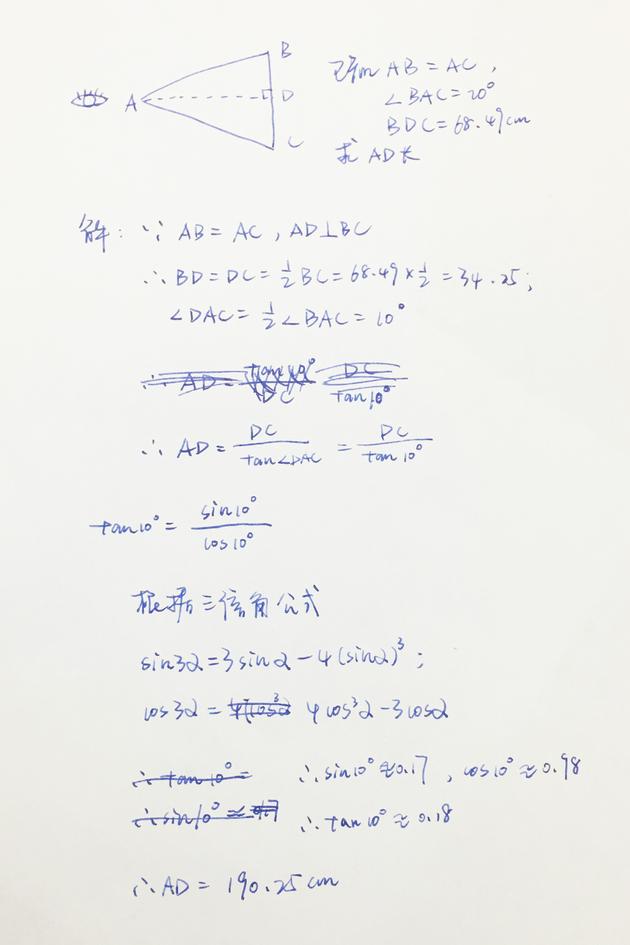 B
A
D
C
已知 AB = AC ,
∠BAC = 20°
BDC = 68.49cm
求 AD 长
解: ∵ AB = AC , AD⊥BC
∴ BD = DC = 1/2 BC = 68.49 × 1/2 = 34.25 ;
∠DAC = 1/2 ∠BAC = 10°
∴ AD = DC / tan10°
∴ AD = DC / tan∠DAC = DC / tan10°
tan10° = sin10° / cos10°
根据三倍角公式
sin3α = 3sinα - 4(sinα)³ ;
cos3α = 4cos³α - 3cosα
∴ tan10° = ∴ sin10° ≈ 0.17 , cos10° ≈ 0.98
∴ sin10° ≈ ∴ tan10° ≈ 0.18
∴ AD = 190.25 cm